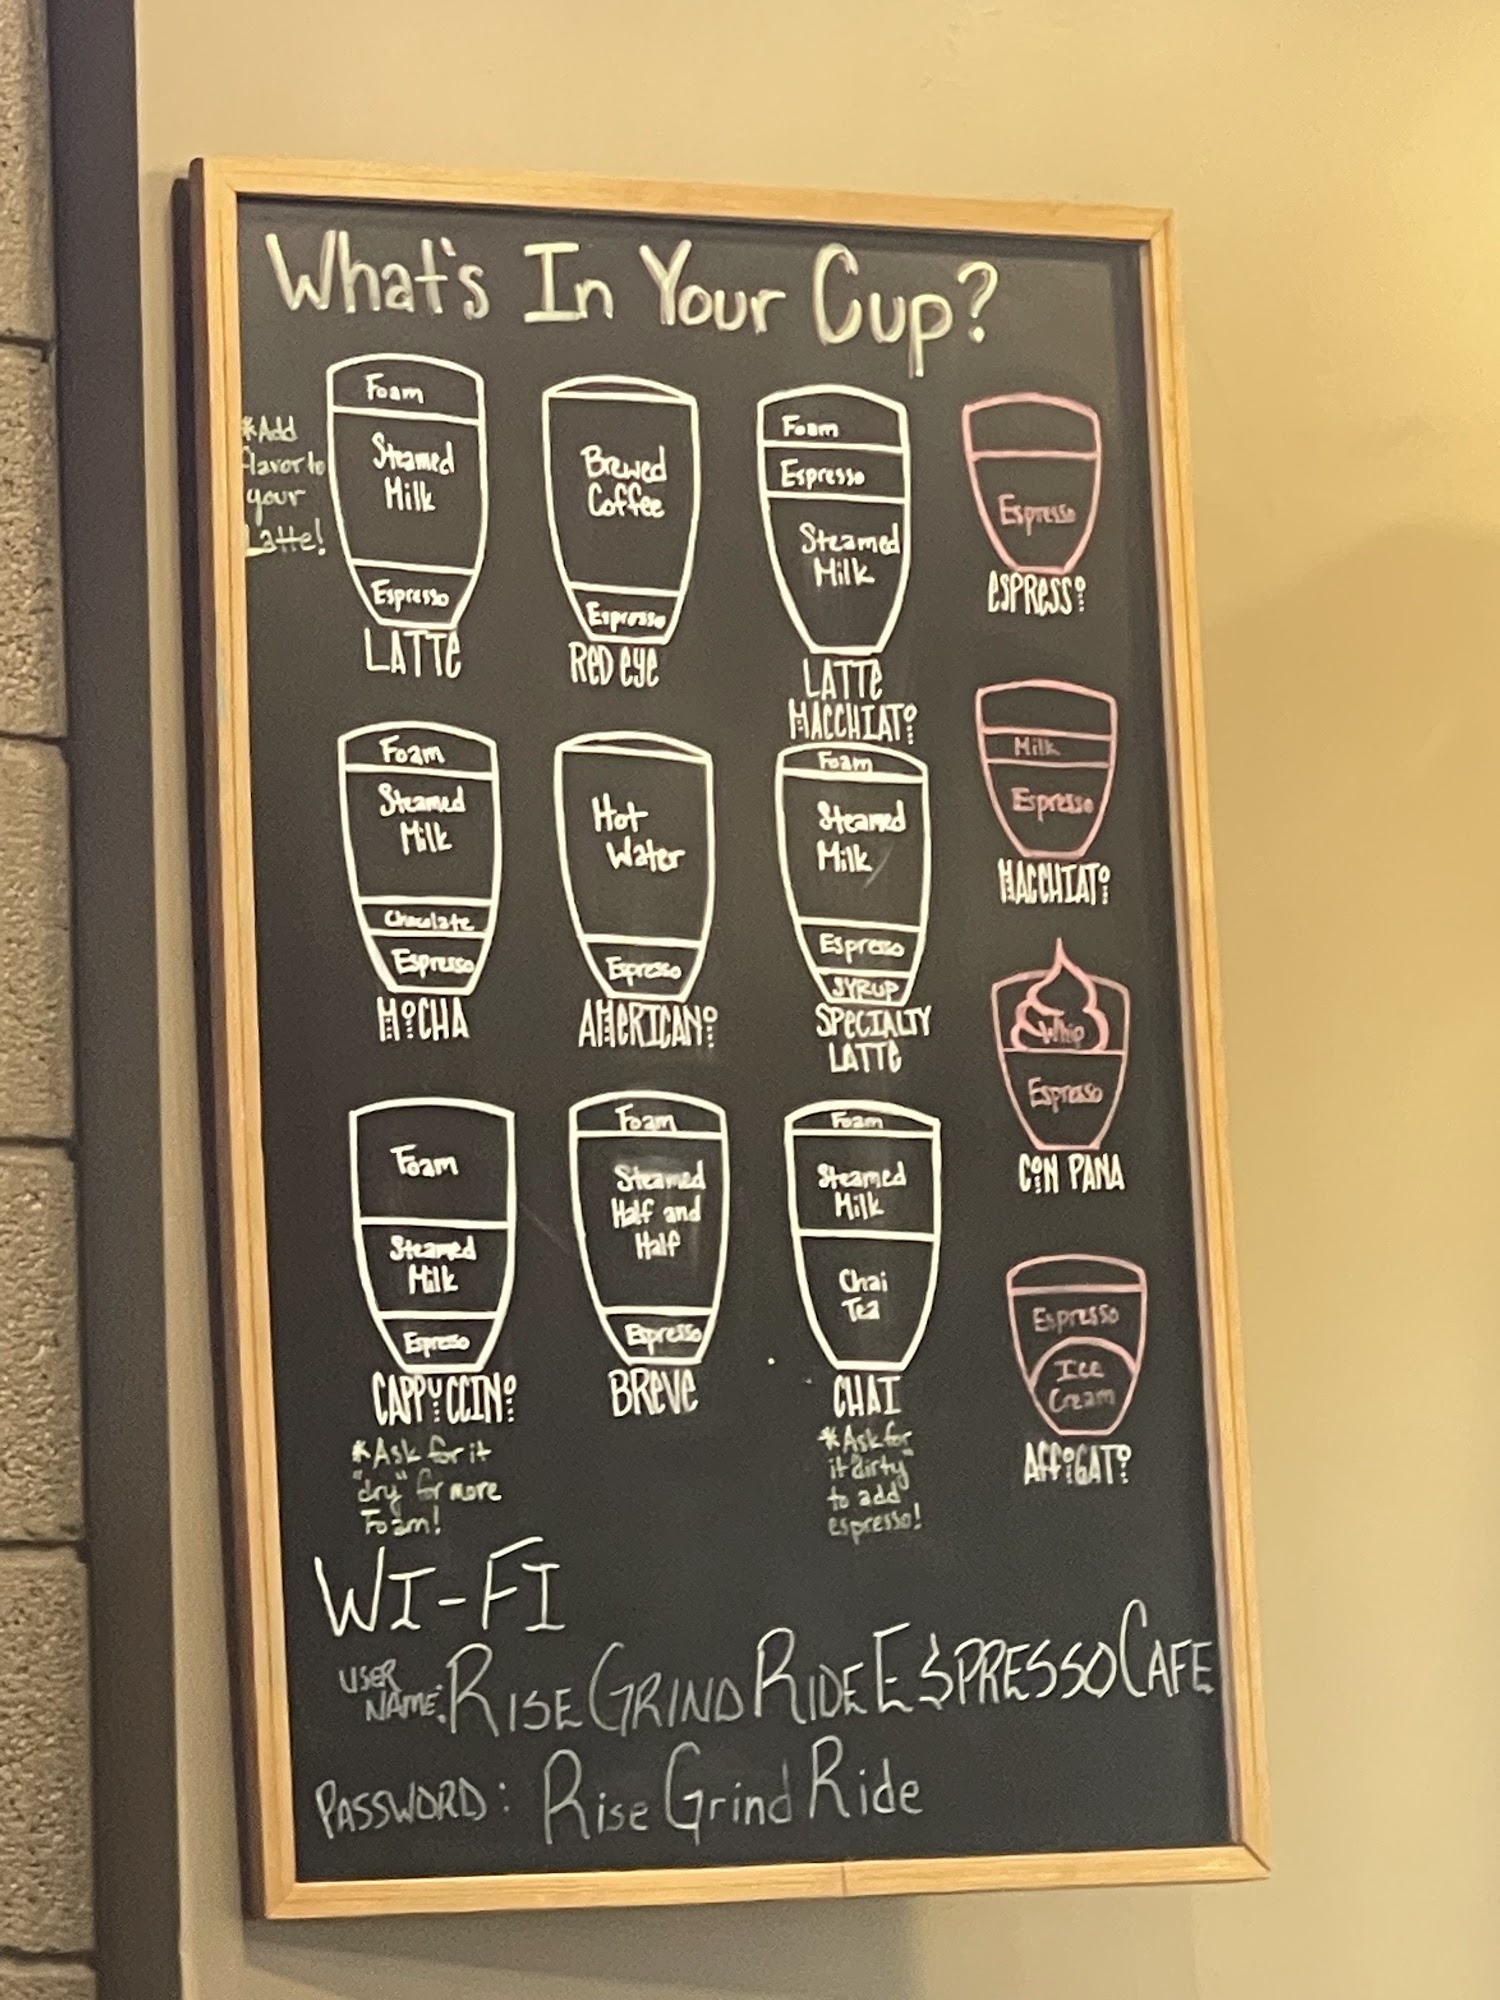 What's In Your Cup?
*Add
flavor to
your
Latte!
Foam
Steamed
Milk
Espresso
LATTE
Brewed
Coffee
Espresso
RED EYE
Foam
Espresso
Steamed
Milk
LATTE
MACCHIATO
Espresso
ESPRESSO
Foam
Steamed
Milk
Chocolate
Espresso
MOCHA
Hot
Water
Espresso
AMERICANO
Foam
Steamed
Milk
Espresso
SYRUP
SPECIALTY
LATTE
Milk
Espresso
MACCHIATO
Whip
Espresso
CON PANA
Foam
Steamed
Milk
Espresso
CAPPUCCINO
*Ask for it
"dry" for more
Foam!
Foam
Steamed
Half and
Half
Espresso
BREVE
Foam
Steamed
Milk
Chai
Tea
CHAI
*Ask for
it "dirty"
to add
espresso!
Espresso
Ice
Cream
AFFOGATO
WI-FI
USER
NAME: RISEGRINDRIDEESPRESSOCAFE
PASSWORD: RiseGrindRide